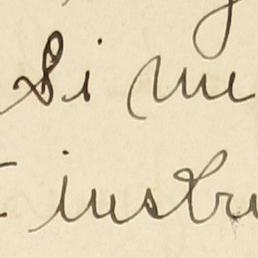 Si me
instru